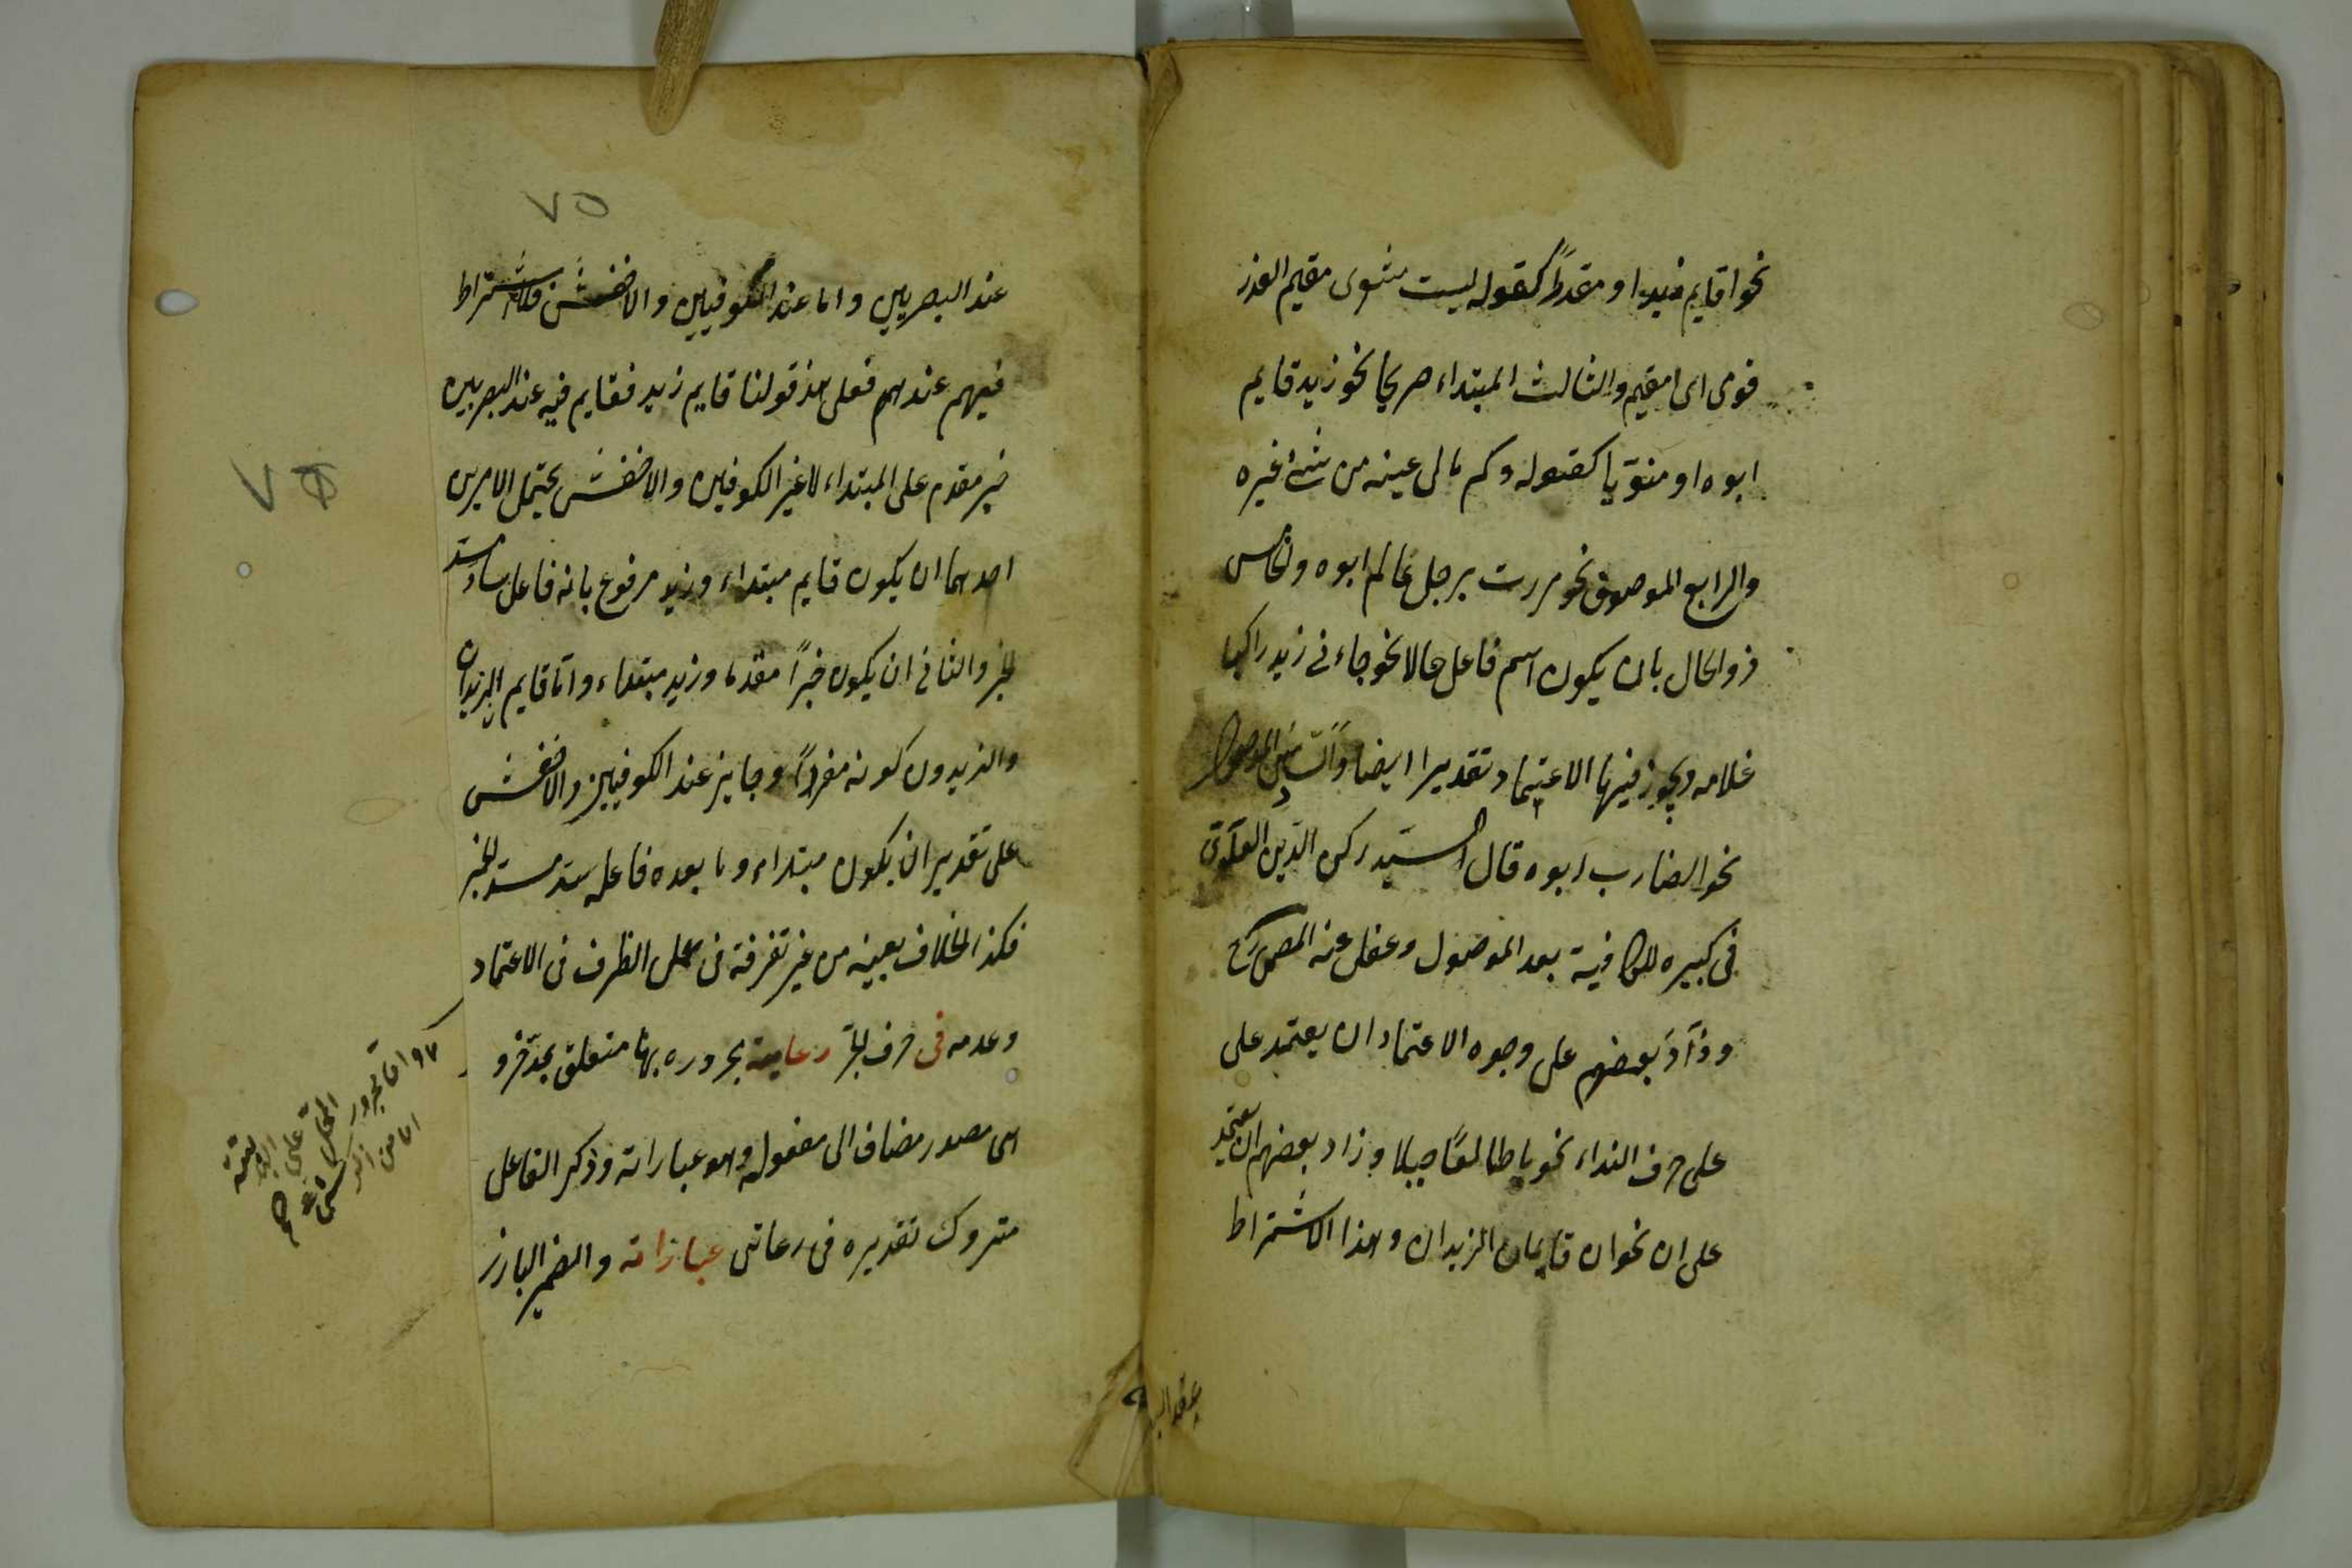 نحو اقايم زيد او مقدراً كقوله ليت شعرى مقيم العذر
قومى اى امقيم والثالث المبتداء صريحا نحو زيد قايم
ابوه او منويا كقوله وكم مالى عينه من شئ غيره
والرابع الموصوف نحو مررت برجل عالم ابوه ولخامس
ذوالحال بان يكون اسم فاعل حالا نحو جاءنى زيد راكبا
غلامه ويجوز فيها الاعتماد تقديرا ايضا والسادس الموصول
نحو الضارب ابوه قال السيد ركن الدين العلوى
فى كبيره للكافية بعد الموصول وغفل عنه المص
وزاد بعضهم على وجوه الاعتماد ان يعتمد على
على حرف النداء نحو يا طالعًا جبلا وزاد بعضهم ان يعتمد
على ان نحو ان قايمان الزيدان وهذا الاشتراط
عند البصر
٧٥
عند البصريين واما عند الكوفيين والاخفش فلا اشتراط
فيهم عندهم فعلى هذ قولنا قايم زيد فقايم فيه عند البصريين
خبر مقدم على المبتداء لاغير الكوفيين والاخفش يحتمل الامرين
احدهما ان يكون قايم مبتداء وزيد مرفوع بانه فاعل ساد مسد
لخبر والثانى ان يكون خبراً مقدما وزيد مبتداء واما قايم الزيدان
والزيدون كونه مفرداً وجايز عند الكوفيين والاخفش
على تقدير ان يكون مبتداء وما بعده فاعله سد مسد لخبر
فكذ الخلاف بعينه من غير تفرقة فى عمل الظرف فى الاعتماد
وعدمه فى حرف لجر رعاية مجروره بها متعلق بحذفو
اى مصدر مضاف الى مفعوله وهو عباراته وذكر الفاعل
متروك تقديره فى رعاتى عباراته والضمير البارز
٧٥